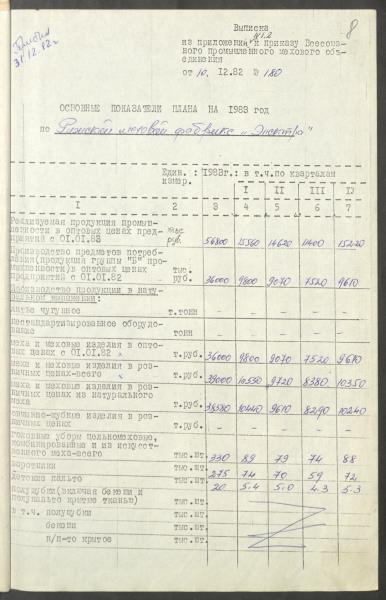 Принята
31.12.82г.
8
Выписка
№ 1.2
из приложения к приказу Всесоюз-
ного промышленного мехового объ-
единения
от 10.12.82 № 180
ОСНОВНЫЕ ПОКАЗАТЕЛИ ПЛАНА НА 1983 год
по Рижской меховой фабрике "Электра"
Един. : 1983г.: в т.ч.по кварталам
измер.
I II III IV
I 2 3 4 5 6 7
Реализуемая продукция промыш-
ленности в оптовых ценах пред-
приятий с 01.01.83 тыс. руб. 56800 15560 14620 11400 15220
Производство предметов потреб-
ления (продукция группы "Б" про-
мышленности) в оптовых ценах
предприятий с 01.01.82 тыс. руб. 36000 9800 9070 7520 9610
Производство продукции в нату-
ральном выражении:
литье чугунное т.тонн - - - - -
нестандартизированное оборудо-
вание тонн - - - - -
меха и меховые изделия в опто-
вых ценах с 01.01.82 т.руб. 36000 9800 9070 7520 9610
меха и меховые изделия в роз-
ничных ценах-всего т.руб. 39000 10550 9720 8380 10350
меха и меховые изделия в роз-
ничных ценах из натурального
меха т.руб. 38580 10440 9610 8290 10240
овчинно-шубные изделия в роз-
ничных ценах т.руб. - - - - -
головные уборы цельномеховые,
комбинированные и из искусст-
венного меха-всего тыс.шт. 330 89 79 74 88
воротники тыс.шт. 275 74 70 59 72
Детские пальто тыс.шт. 20 5.4 5.0 4.3 5.3
полушубки(включая бекеши и
полупальто крытые тканью) тыс.шт.
в т.ч. полушубки тыс.шт.
бекеши тыс.шт.
п/п-то крытое тыс.шт.